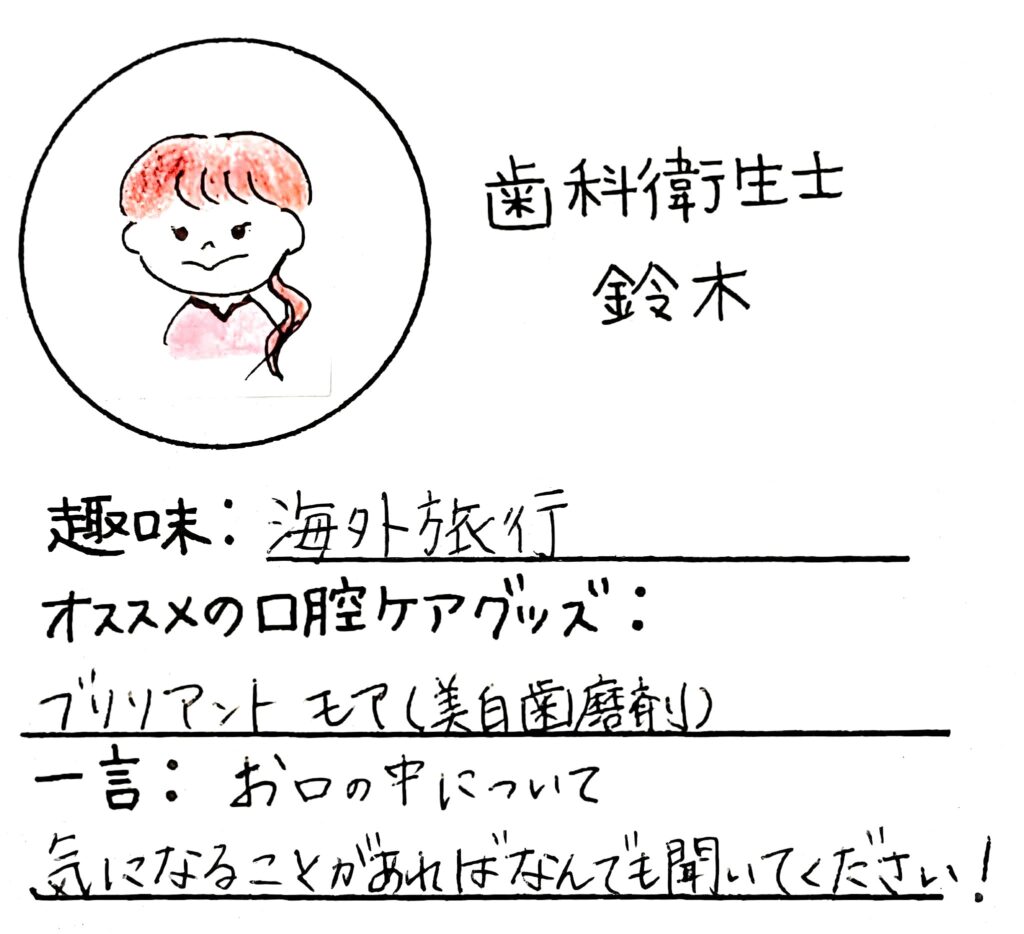 歯科衛生士
鈴木
趣味：海外旅行
オススメの口腔ケアグッズ：
ブリリアント モア（美白歯磨剤）
一言：お口の中について
気になることがあればなんでも聞いてください！